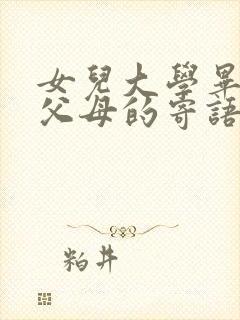 女兒大學畢
父母的寄語
粕井